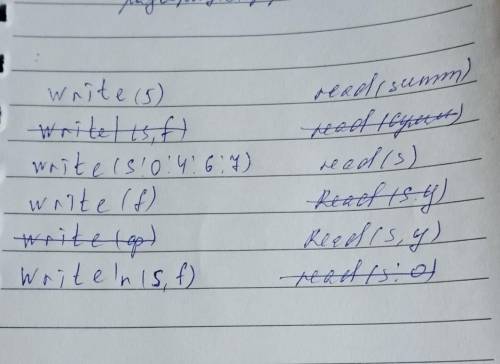 write(s) read(summ)
write(s,f) read(сумм)
write(s:0:4:6:7) read(s)
write(f) Read(s.y)
write(ф) Read(s,y)
Writeln(s,f) read(s:0)